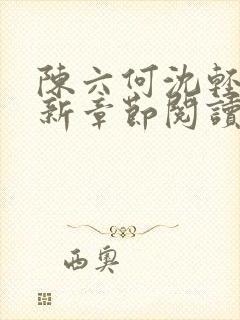 陳六何沈輕
新章節閱讀
西奧